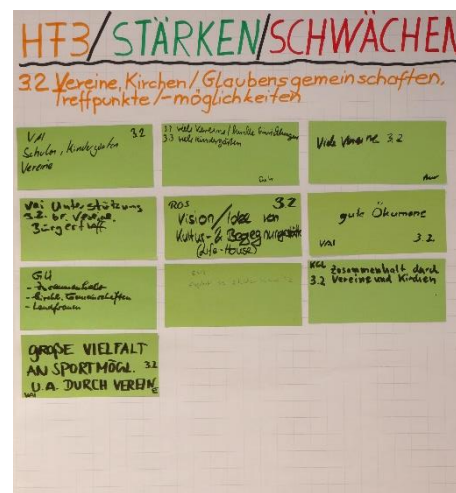 HF3/STÄRKEN/SCHWÄCHEN
3.2 Vereine, Kirchen/Glaubensgemeinschaften,
Treffpunkte/-möglichkeiten
VAI 3.2
Schulen, Kindergärten
Vereine
3.1 viele Vereine/
3.3 viele Kindergärten
Viele Vereine 3.2
VAI Unterstützung
3.2. br. Vereine.
Bürgertreff.
ROS 3.2
Vision/Idee von
Kultur- & Begegnungsstätte
(Life-House)
gute Ökumene
VAI 3.2
GU
- Zusammenhalt
- kirchl. Gemeinschaften
- Landfrauen
KGL Zusammenhalt durch
3.2 Vereine und Kirchen
GROßE VIELFALT
AN SPORTMÖGL. 3.2
U.A. DURCH VEREINE
VAI